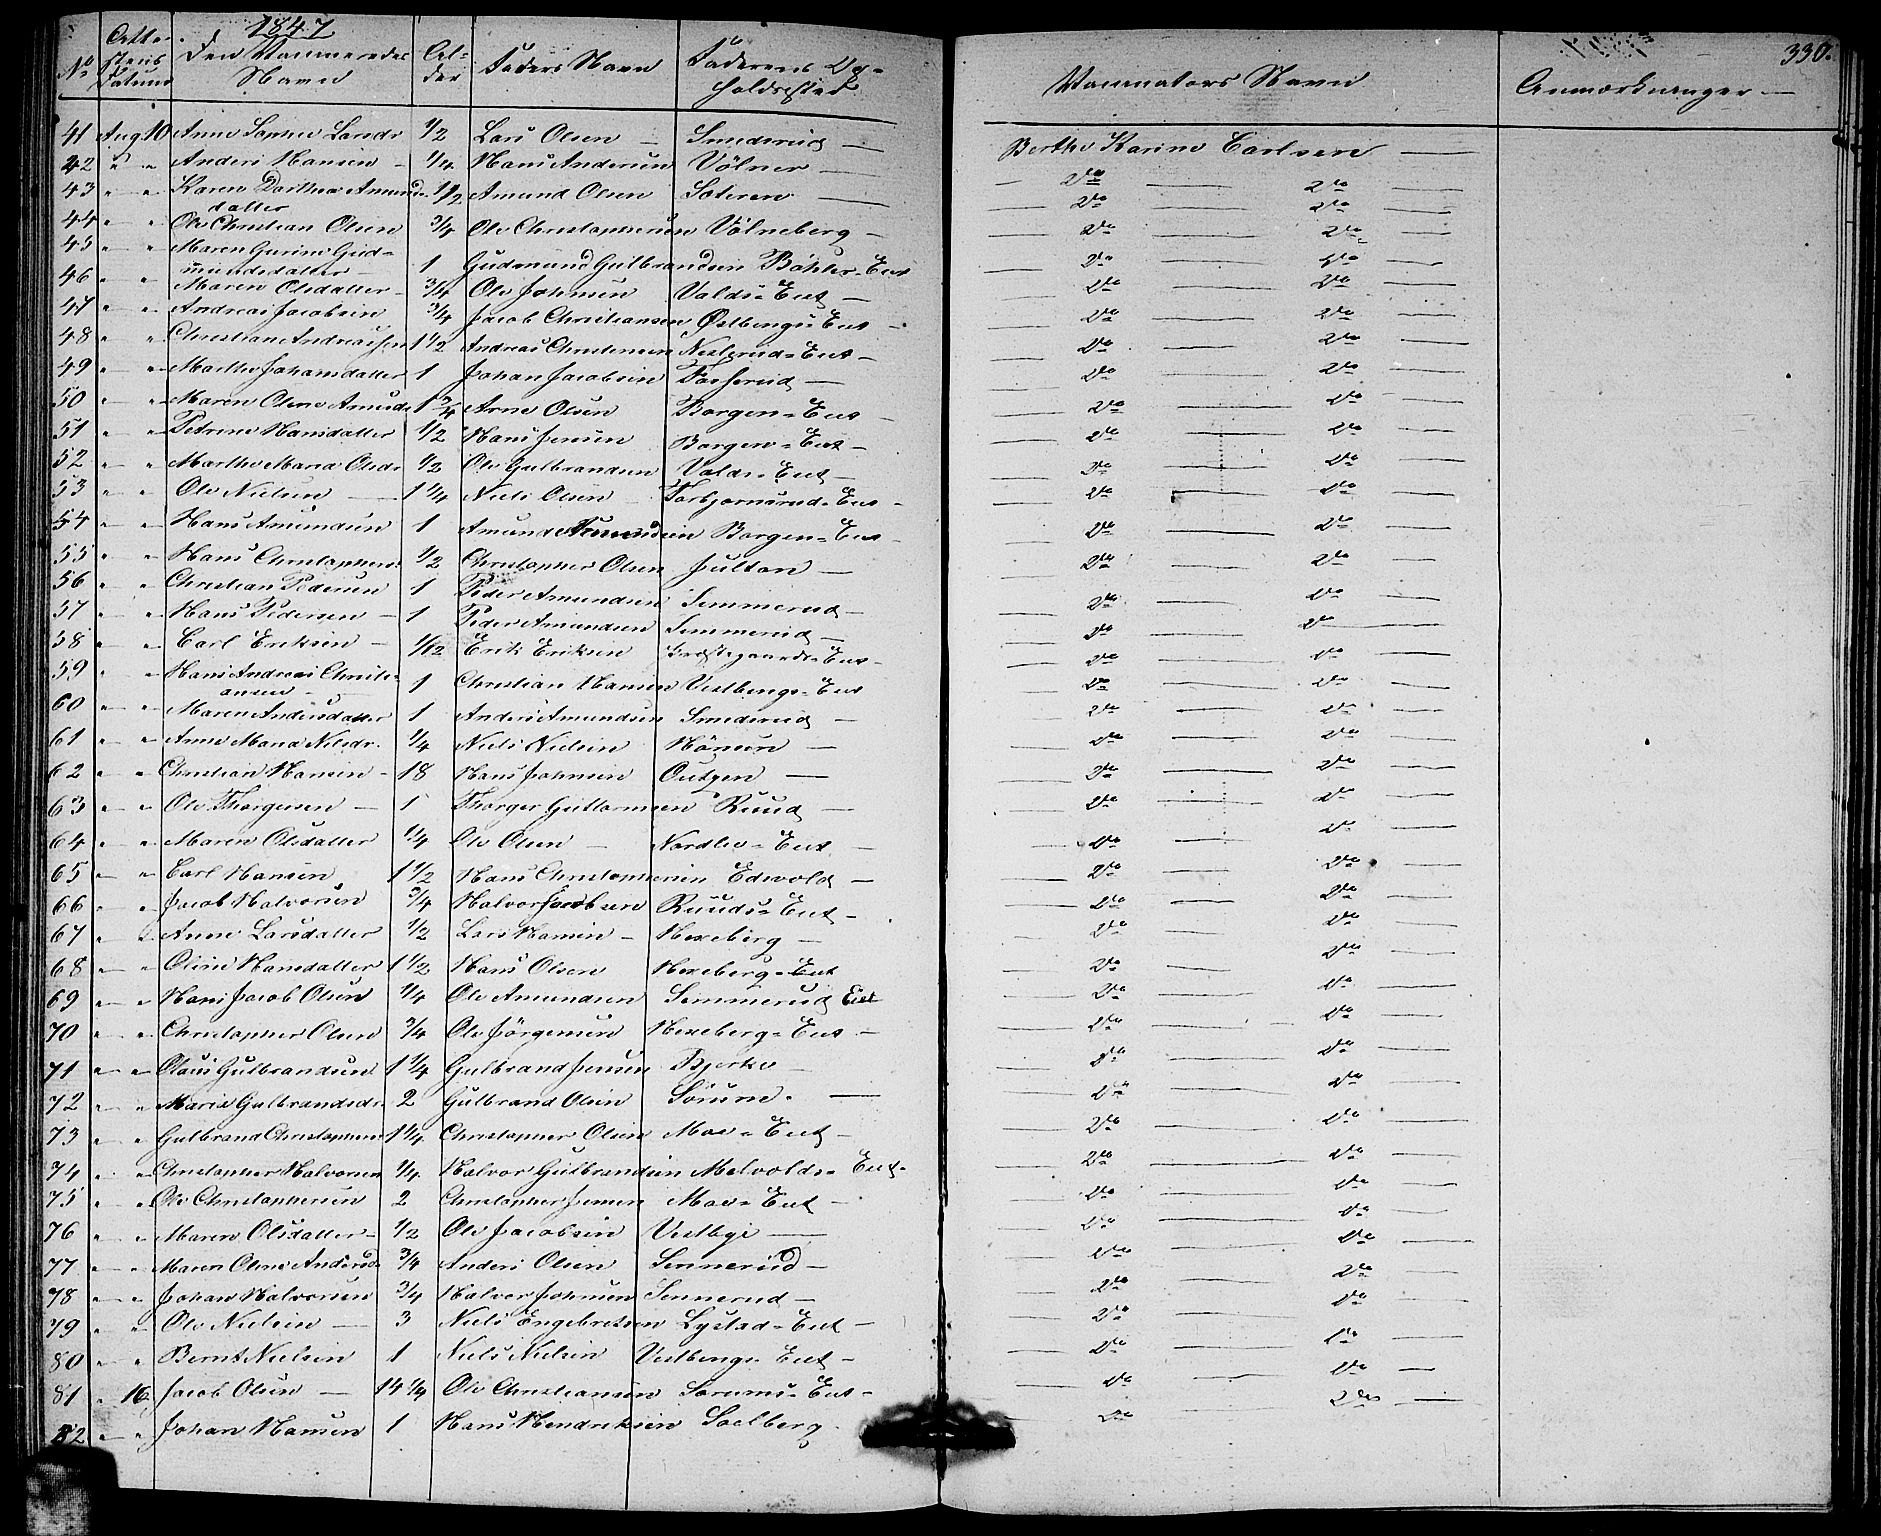 1847
330.
No Atte- stens Datum Den Vaccineredes Navn Al- der Faders Navn Faderens Op- holdssted Vaccinators Navn Anmærkninger
41 Aug 10 Anne Sophie Larsdr 1/2 Lars Olsen Smedsrud Berthe Karine Carlsen
42 " " Anders Hansen 1/4 Hans Andersen Völner Do Do
43 " " Karen Dorthea Amunds- 1/2 Amund Olsen Sæteren Do Do
datter
44 " " Ole Christian Olsen 3/4 Ole Christophersen Völneberg Do Do
45 " " Maren Gurine Gud-
mundsdatter 1 Gudmund Gulbrandsen Böhler-Eiet Do Do
46 " " Maren Olsdatter 3/4 Ole Johnsen Valds-Eiet Do Do
47 " " Andreas Jacobsen 3/4 Jacob Christiansen Østbengs Eiet Do Do
48 " " Christiane Andreasen 1 1/2 Andreas Christensen Nestsrud-Eiet Do Do
49 " " Marthe Johansdatter 1 Johan Jacobsen Do Do
50 " " Maren Oline Arnesdr 1 3/4 Arne Olsen Borgen-Eiet Do Do
51 " " Petrine Hansdatter 1/2 Hans Jensen Borgen-Eiet Do Do
52 " " Marthe Maria Olsdr 1/2 Ole Gulbrandsen Valds-Eiet Do Do
53 " " Ole Nielsen 1 1/4 Niels Olsen Torbjornsrud-Eiet Do Do
54 " " Hans Amundsen 1 Amund Amundsen Borgen-Eiet Do Do
55 " " Hans Christophers 1/2 Christopher Olsen Jultan Do Do
56 " " Christian Pedersen 1 Peder Amundsen Semmerud Do Do
57 " " Hans Pedersen 1 Peder Amundsen Semmerud Do Do
58 " " Carl Eriksen 1/12 Erik Eriksen Præstegaards-Eiet Do Do
59 " " Hans Andreas Christi-
ansen 1 Christian Hansen Vestbengs-Eiet Do Do
60 " " Maren Andersdatter 1 Anders Amundsen Smedsrud Do Do
61 " " Anne Maria Nilsdr. 1/4 Niels Nielsen Hönsen Do Do
62 " " Christian Hansen 18 Hans Johnsen Outgen Do Do
63 " " Ole Thorgersen 1 Thorger Guttormsen Ruud Do Do
64 " " Maren Olsdatter 1/4 Ole Olsen Nordlie-Eiet Do Do
65 " " Carl Hansen 1 1/2 Hans Christophersen Edsvold Do Do
66 " " Jacob Halvorsen 3/4 Halvor Jacobsen Ruuds-Eiet Do Do
67 " " Anne Larsdatter 1/2 Lars Hansen Hexeberg Do Do
68 " " Oline Hansdatter 1 1/2 Hans Olsen Hexeberg-Eiet Do Do
69 " " Hans Jacob Olsen 1/4 Ole Amundsen Semmerud Eiet Do Do
70 " " Christopher Olsen 3/4 Ole Jörgensen Hexeberg-Eiet Do Do
71 " " Olaus Gulbrandsen 1 1/4 Gulbrand Jensen Bjerke Do Do
72 " " Maria Gulbrandsdr 2 Gulbrand Olsen Sörum. Do Do
73 " " Gulbrand Christophers 1 1/4 Christopher Olsen Moe-Eiet Do Do
74 " " Christopher Halvorsen 1/4 Halvor Gulbrandsen Melvolds-Eiet Do Do
75 " " Ole Christophersen 2 Christopher Jensen Moe-Eiet Do Do
76 " " Maren Olsdatter 1/2 Ole Jacobsen Vestbye Do Do
77 " " Maren Oline Andersdr 3/4 Anders Olsen Sennerud Do Do
78 " " Johan Halvorsen 3/4 Halvor Johnsen Sennerud Do Do
79 " " Ole Nielsen 3 Niels Engebretsen Lystad-Eiet Do Do
80 " " Bernt Nielsen 1 Niels Nielsen Vestbengs Eiet Do Do
81 " 16 Jacob Olsen 14 1/4 Ole Christiansen Sørums-Eiet Do Do
82 " " Johan Hansen 1 Hans Hendriksen Soelberg Do Do